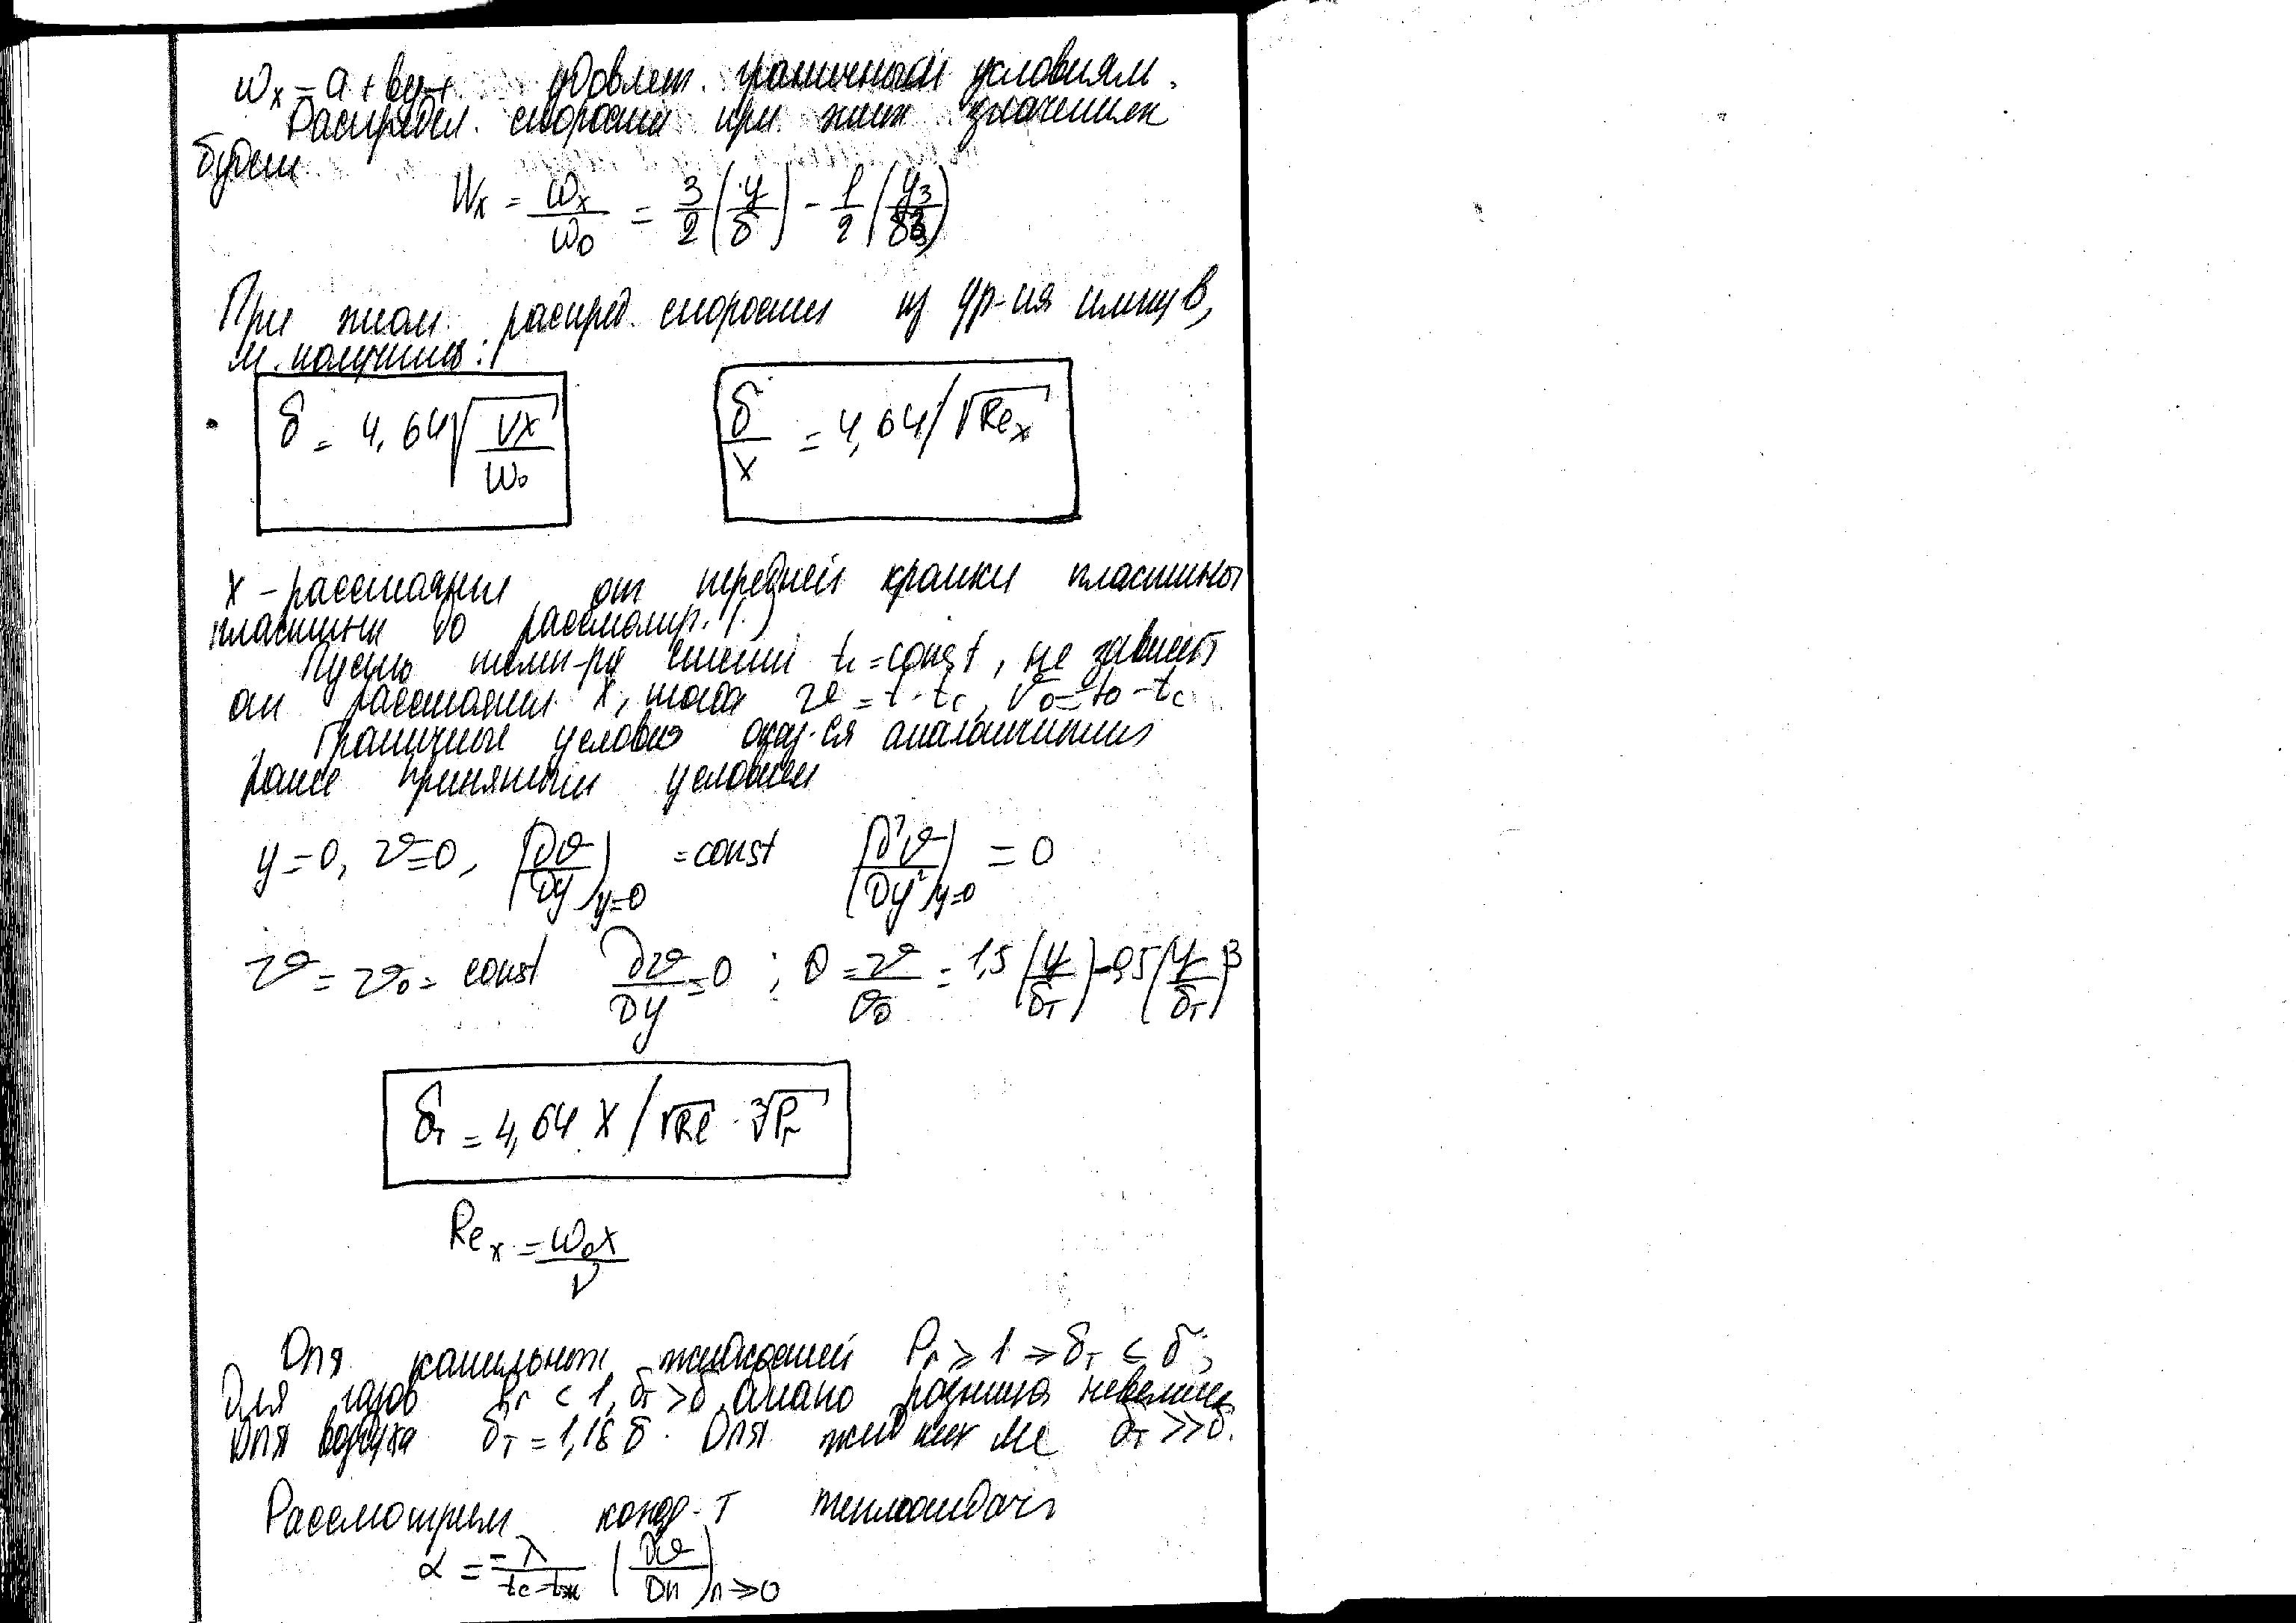 w_x = a + by +      удовлет. граничным условиям.
Распредел. скорости при таких значениях
будет
W_x = w_x/w_0 = 3/2 (y/δ) - 1/2 (y^3/δ^3)
При таком распред. скорости из ур-ия
м. получить:
δ = 4,64 √(νx/w_0)      δ/x = 4,64/√Re_x
x - расстояние от передней кромки пластины
пластины до рассматр. т.)
Пусть темп-ра стенки t_c = const, не зависит
от расстояния x, тогда ϑ = t - t_c, ϑ_0 = t_0 - t_c
Граничные условия окаж-ся аналогичными
ранее принятым условиям
y = 0, ϑ = 0, (∂ϑ/∂y)_{y=0} = const   (∂²ϑ/∂y²)_{y=0} = 0
ϑ = ϑ_0 = const   ∂ϑ/∂y = 0 ; θ = ϑ/ϑ_0 = 1,5 (y/δ_т) - 0,5 (y/δ_т)^3
δ_т = 4,64 x / √Re · ∛Pr
Re_x = w_0 x/ν
Для капельных жидкостей Pr ⩾ 1 ⇒ δ_т ⩽ δ;
Для газов Pr < 1, δ_т > δ однако разница невелика
Для воздуха δ_т = 1,18 δ. Для жидких Ме δ_т >> δ.
Рассмотрим коэф-т теплоотдачи
α = -λ/(t_c - t_ж) (∂ϑ/∂n)_{n→0}